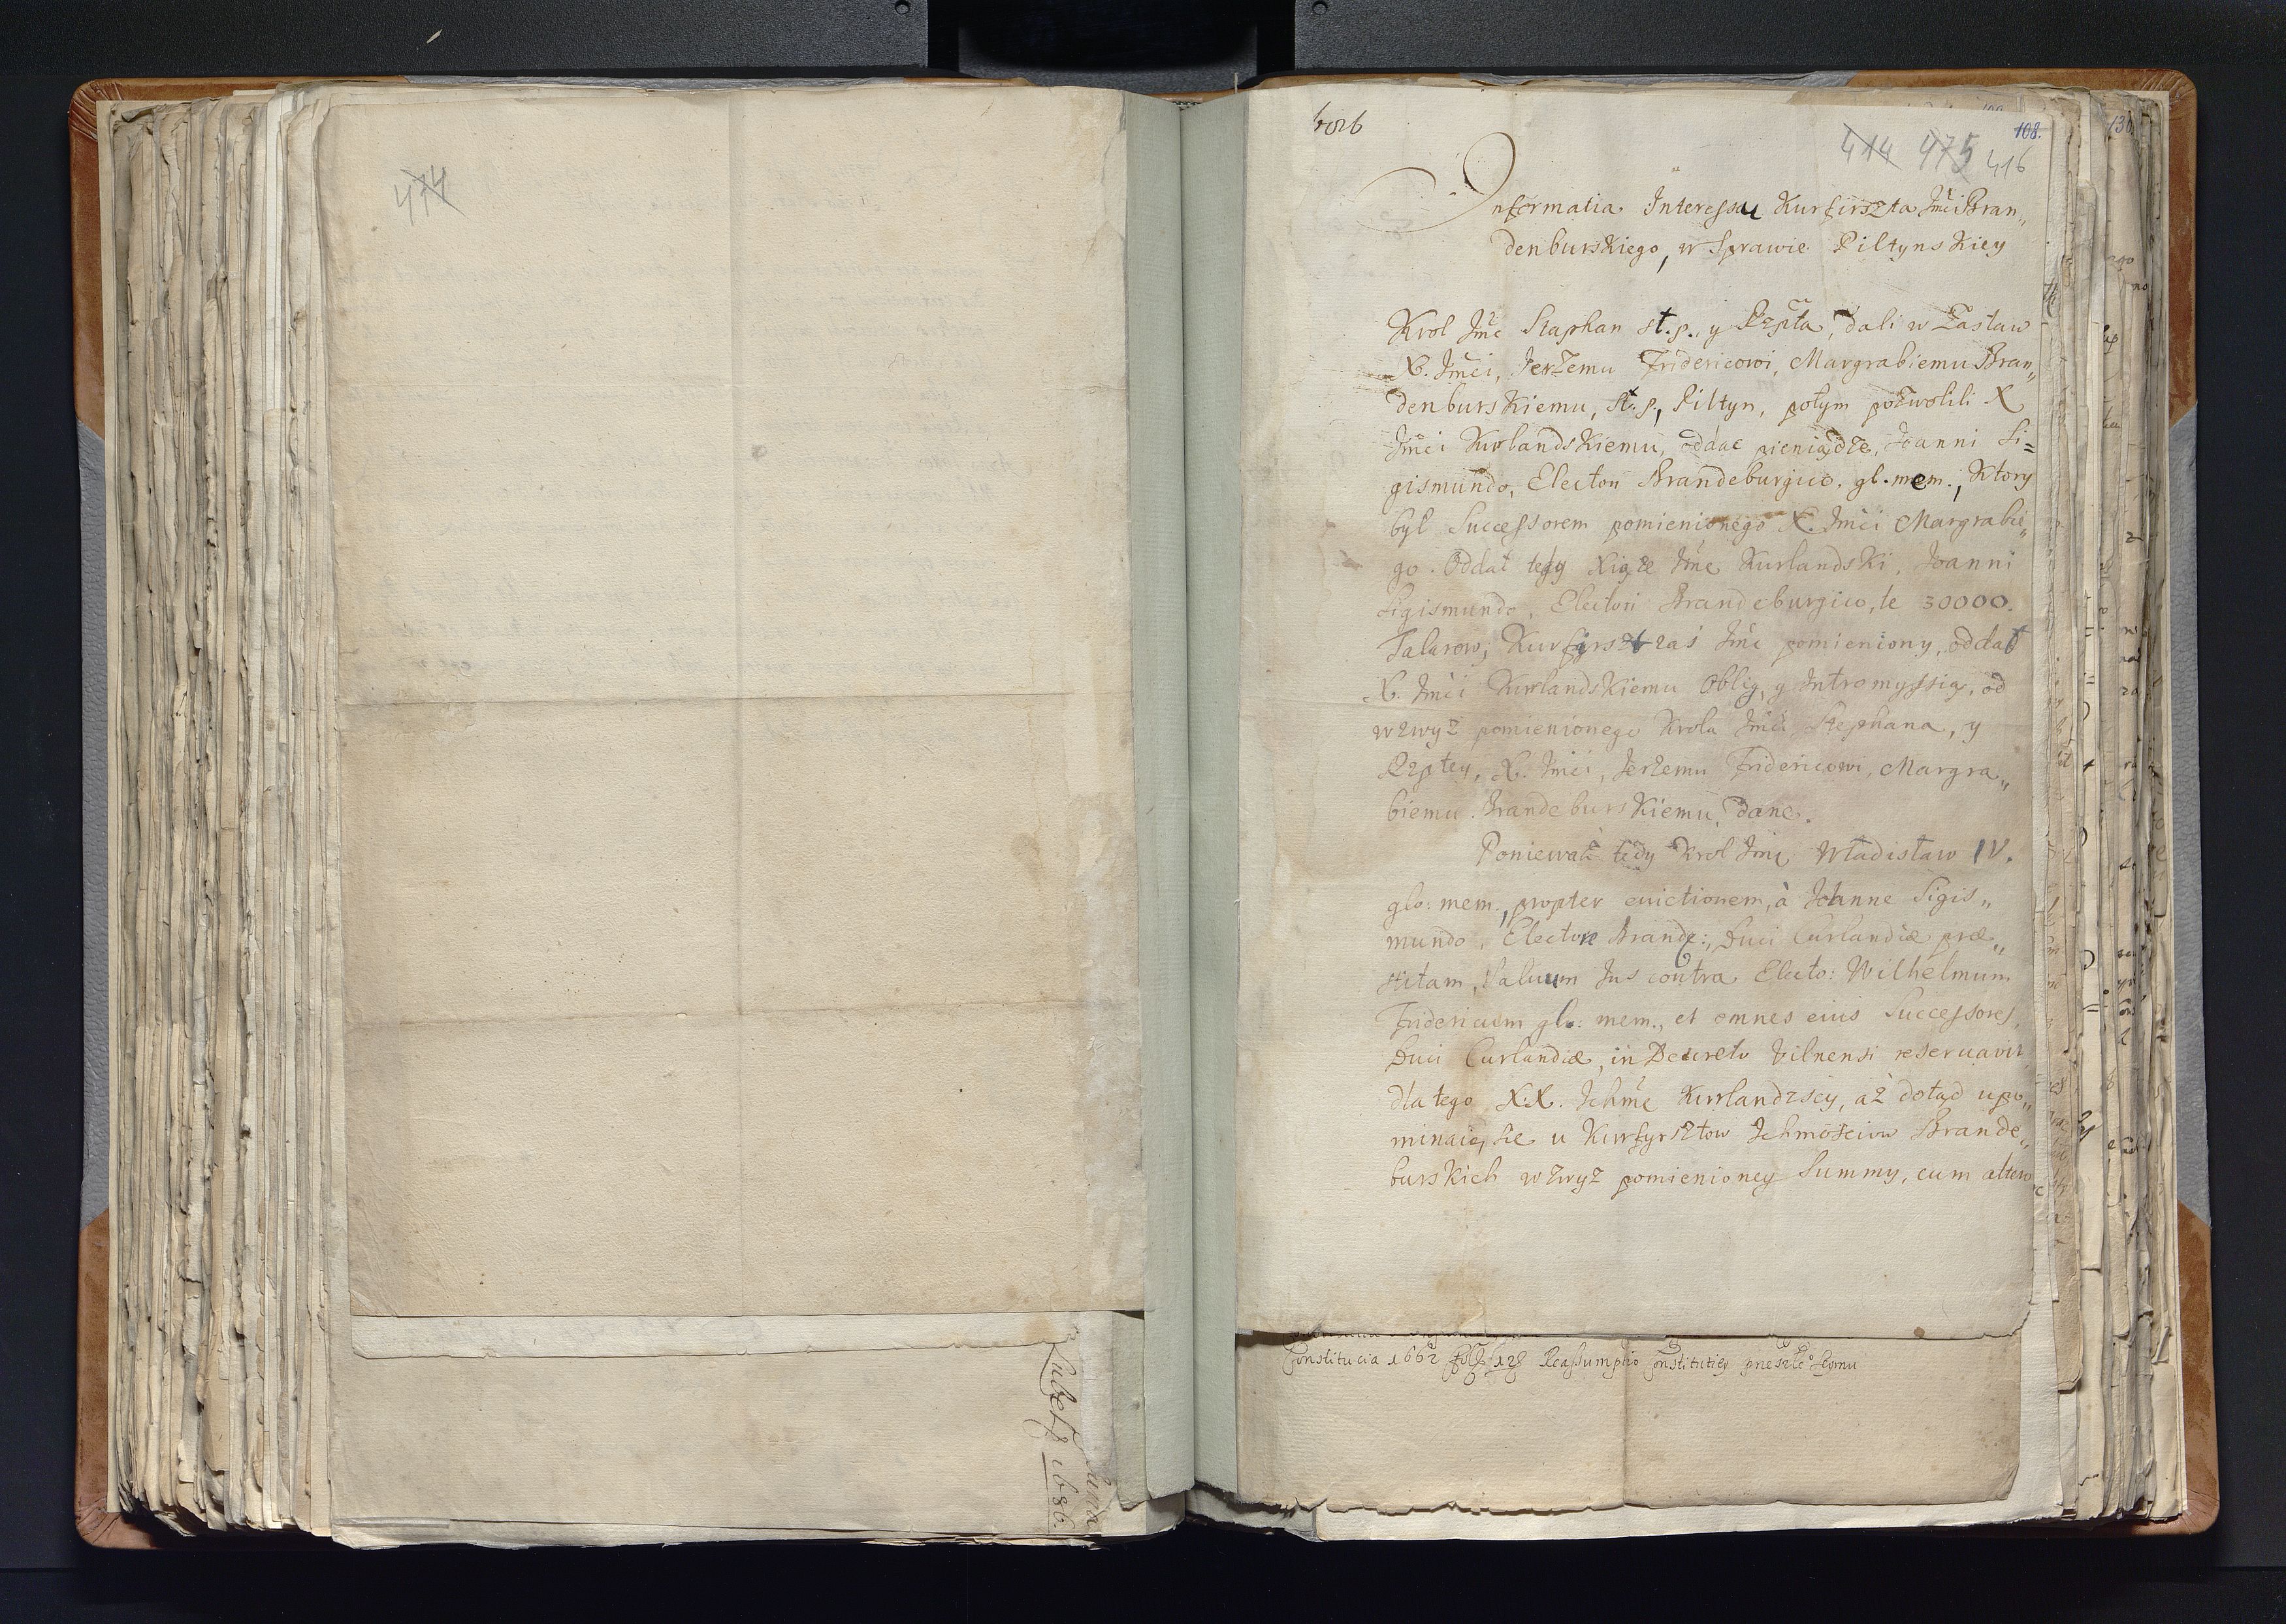 474
Lubetz 1686.
108.
414 475 416
Informatia Interessu Kurfirszta Jmći Bran„
denburskiego, w Sprawie Piltynskiey
Krol Jmć Staphan st. p. y Rzpta, dali w Zastaw
X. Jmći, Jerzemu Fridericowi, Margrabiemu Bran„
denburskiemu, st. p., Piltyn, potym pozwolili X
Jmći Kurlandskiemu, oddac pieniądze, Joanni Si=
gismundo, Electori Brandeburgico, gl. mem., Ktory
był Successorem pomienionego X. Jmći Margrabie„
go. Oddał tedy Xiąże Jmć Kurlandski, Joanni
Sigismundo, Electori Brandeburgico, te 30000.
Talarow, Kurfirszt zaś Jmć pomieniony, oddał
X. Jmći Kurlandskiemu Oblig, y Intromyssią, od
wzwyż pomienionego Krola Jmći Stephana, y
Rzptey, X. Jmći, Jerzemu Fridericowi, Margra„
biemu Brandeburskiemu, dane.
Poniewaź tedy Krol Jmć Władisław IV.
glo: mem., propter evictionem, à Joanne Sigis„
mundo, Electore Brande:, Duci Curlandiæ præ„
stitam, salvum Jus contra Electo: Wilhelmum
Fridericum glo: mem., et omnes eius Successores,
Duci Curlandiæ, in Decreto Vilnensi reservavit
dla tego XX. Ichmć Kurlandzscy, aż dotąd upo„
minaią sie u Kurfyrsztow Ichmościow Brande„
burskich wzwyż pomienioney Summy, cum altero
Constitucia 1662 fol: 128 Reassumptio Constitutiey przeszłeo Seymu